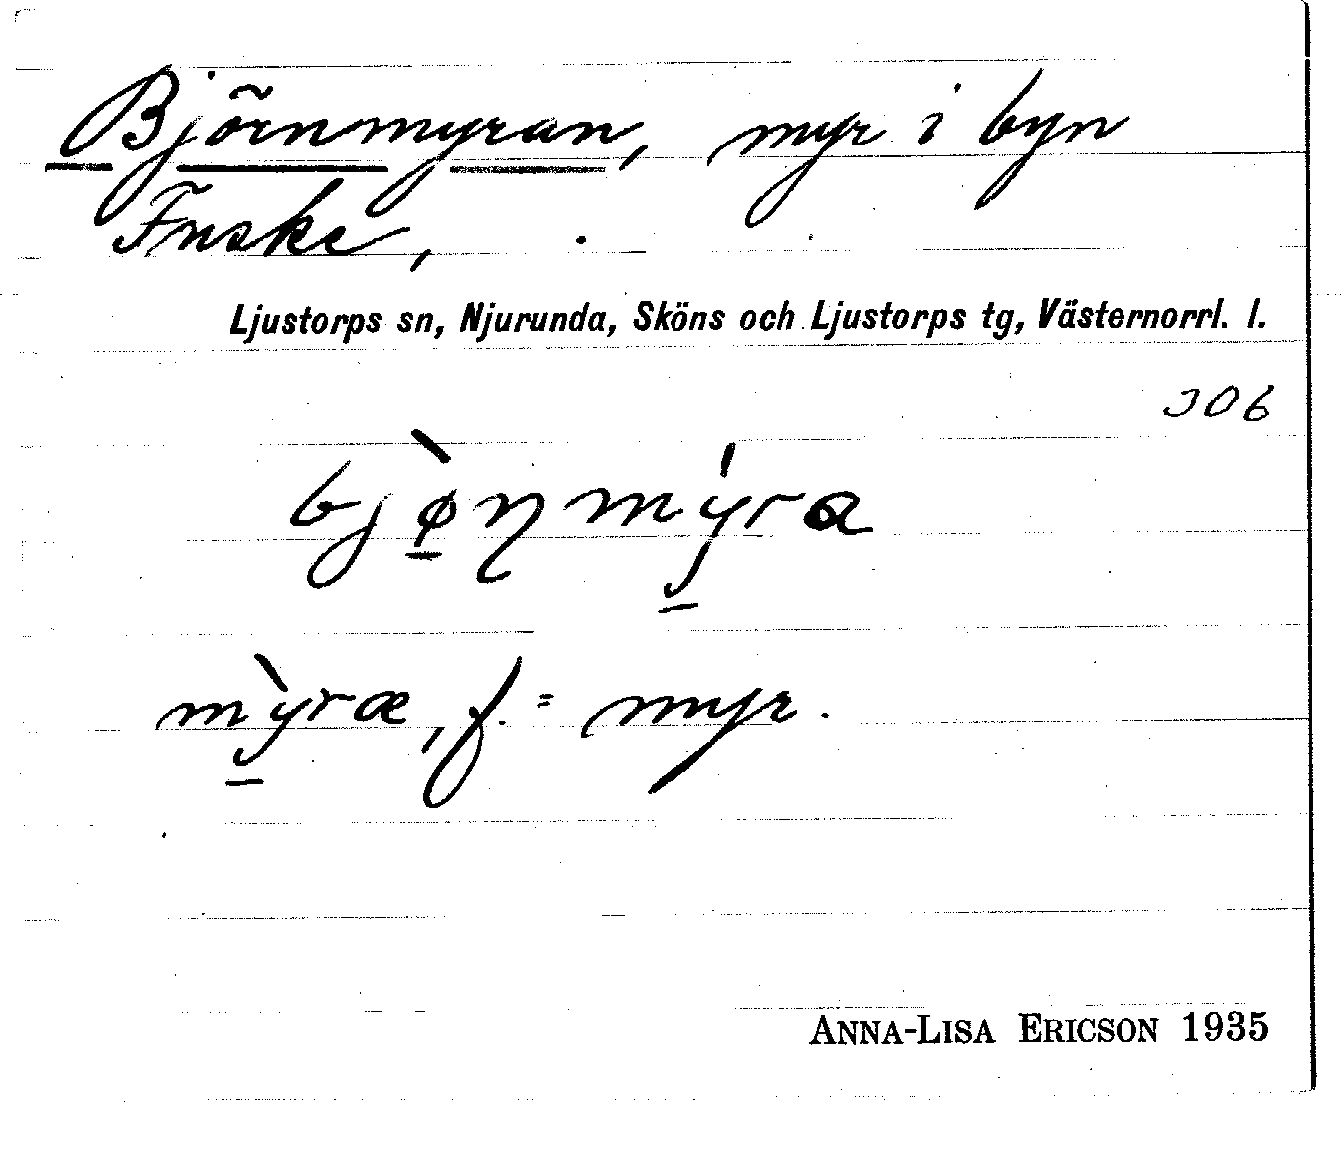 Björnmyran, myr i byn
Fuske,
Ljustorps sn, Njurunda, Sköns och Ljustorps tg, Västernorrl. l.
JOB
bjø̠̀ɳmý̠ra
mỳ̠ræ, f. = myr.
ANNA-LISA ERICSON 1935